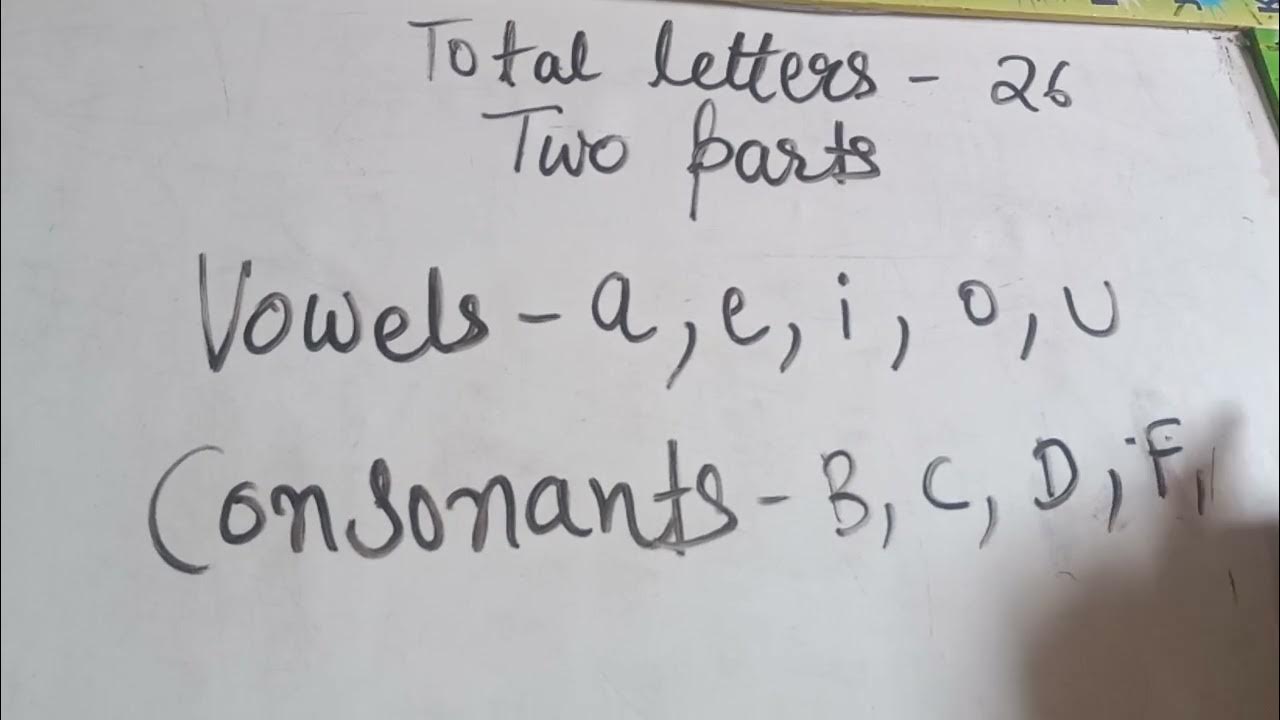 Total letters - 26
Two parts
Vowels - a, e, i, o, u
Consonants - B, C, D, F,